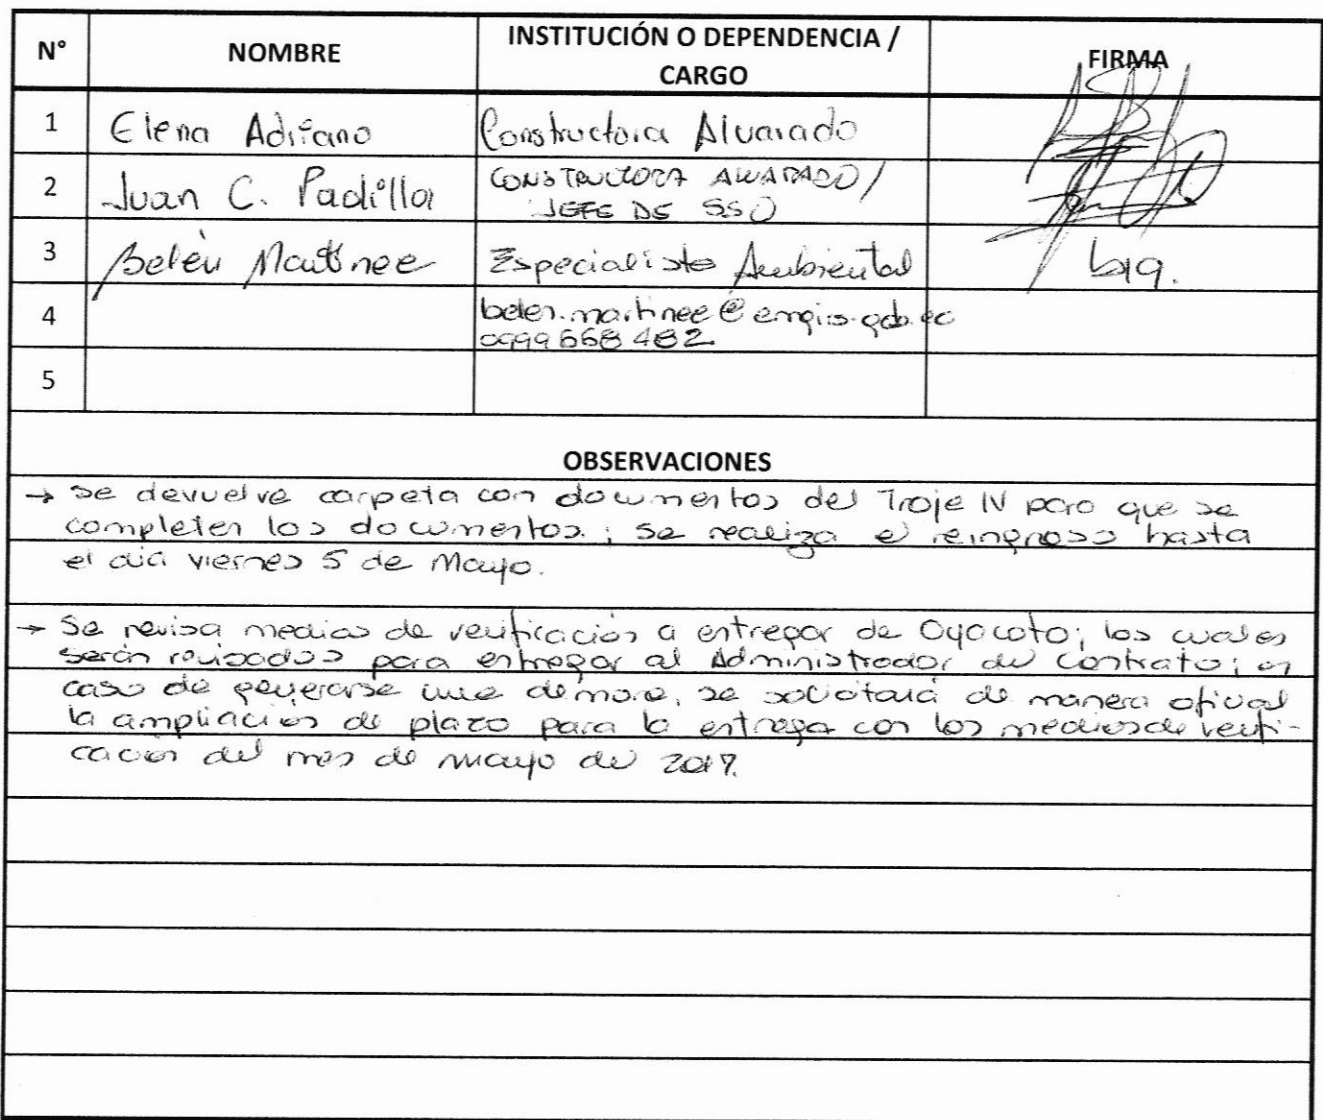 N° NOMBRE INSTITUCIÓN O DEPENDENCIA / CARGO FIRMA
1 Elena Adriano Constructora Alvarado
2 Juan C. Padilla CONSTRUCTORA ALVARADO/
JEFE DE SSO
3 Belén Martínez Especialista Ambiental
4 belen.martinez@emgirs.gob.ec
0999668482
5
OBSERVACIONES
→ Se devuelve carpeta con documentos del Troje IV para que se
completen los documentos; se realiza el reingreso hasta
el día viernes 5 de Mayo.
→ Se revisa medios de verificación a entregar de Oyacoto; los cuales
serán revisados para entregar al Administrador del contrato; en
caso de generarse una demora, se solicitará de manera oficial
la ampliación de plazo para la entrega con los medios de verifi-
cación del mes de mayo de 2017.